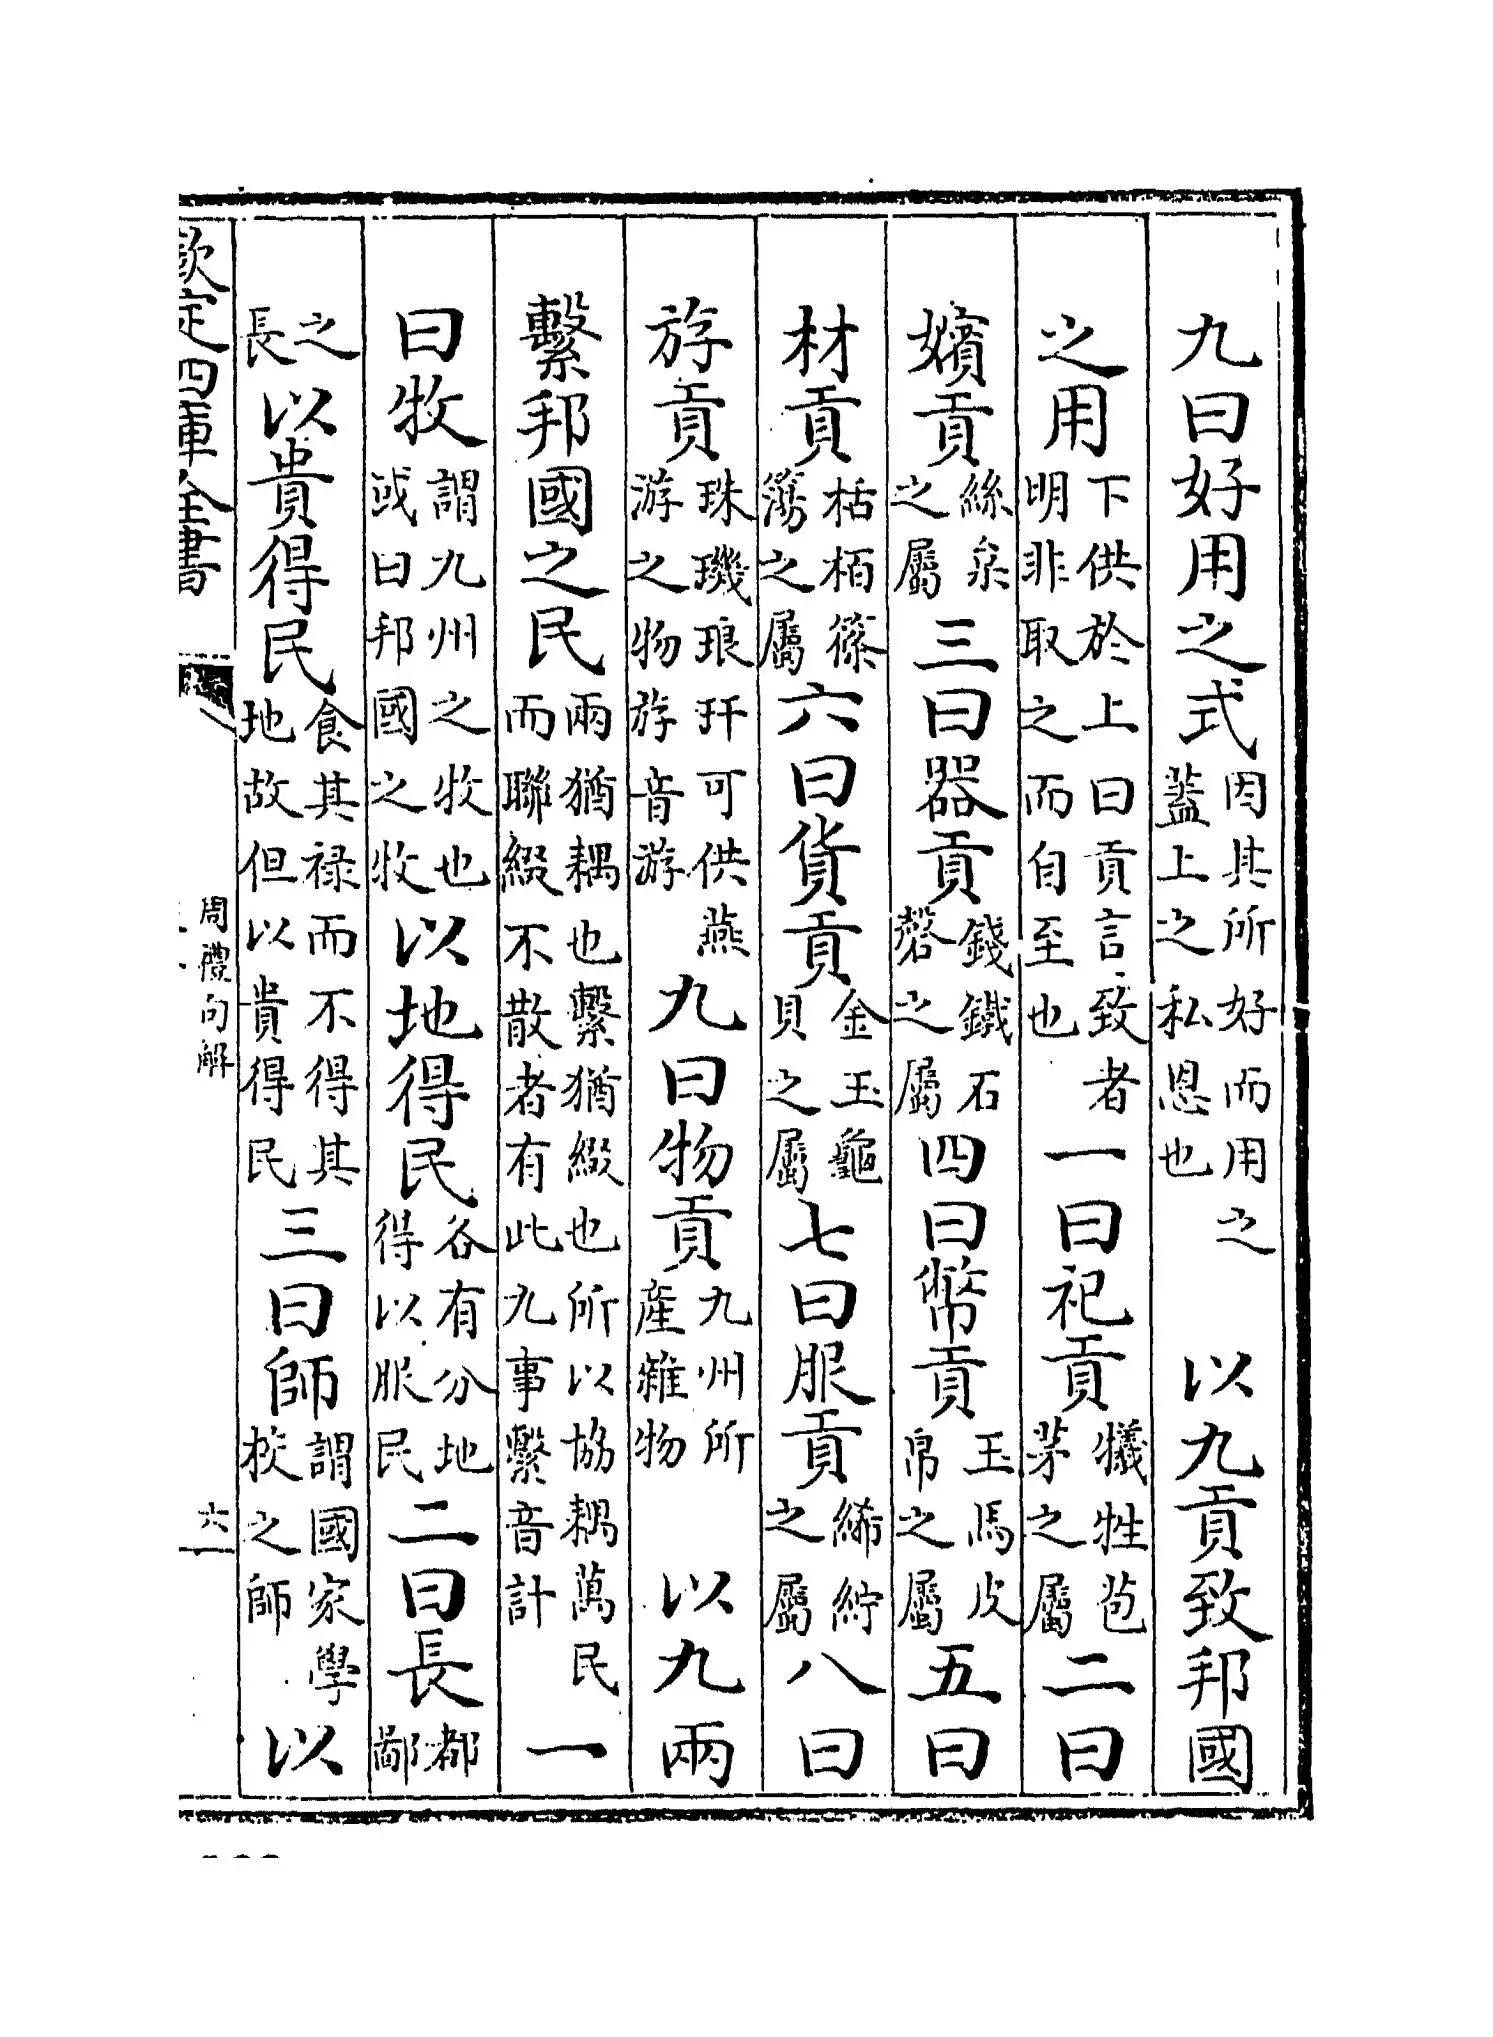 九曰好用之式因其所好而用之蓋上之私恩也　以九貢致邦國
之用下供於上曰貢言致者明非取之而自至也一曰祀貢犧牲苞茅之屬二曰
嬪貢絲枲之屬三曰器貢錢鐡石磬之屬四曰幣貢玉馬皮帛之屬五曰
材貢栝栢篠簜之屬六曰貨貢金玉龜貝之屬七曰服貢絺紵之屬八曰
斿貢珠璣琅玕可供燕游之物斿音游九曰物貢九州所產雜物　以九兩
繫邦國之民兩猶耦也繫猶綴也所以協耦萬民而聯綴不散者有此九事繫音計一
曰牧謂九州之牧也或曰邦國之牧以地得民各有分地得以服民二曰長都鄙
之長以貴得民食其禄而不得其地故但以貴得民三曰師謂國家學校之師以
欽定四庫全書
周禮句解
六